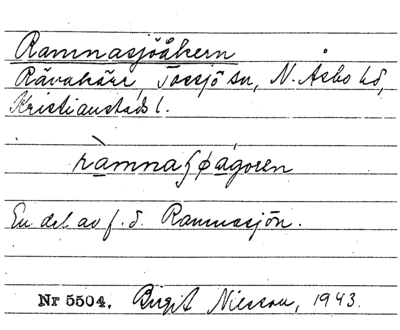 Ramnasjöåkern
Rävakärr, Tossjö sn, N. Åsbo hd,
Kristianstads l.
ràmnaʃøágoren
En del av f. d. Ramnasjön.
Nr 5504. Birgit Nilsson, 1943.